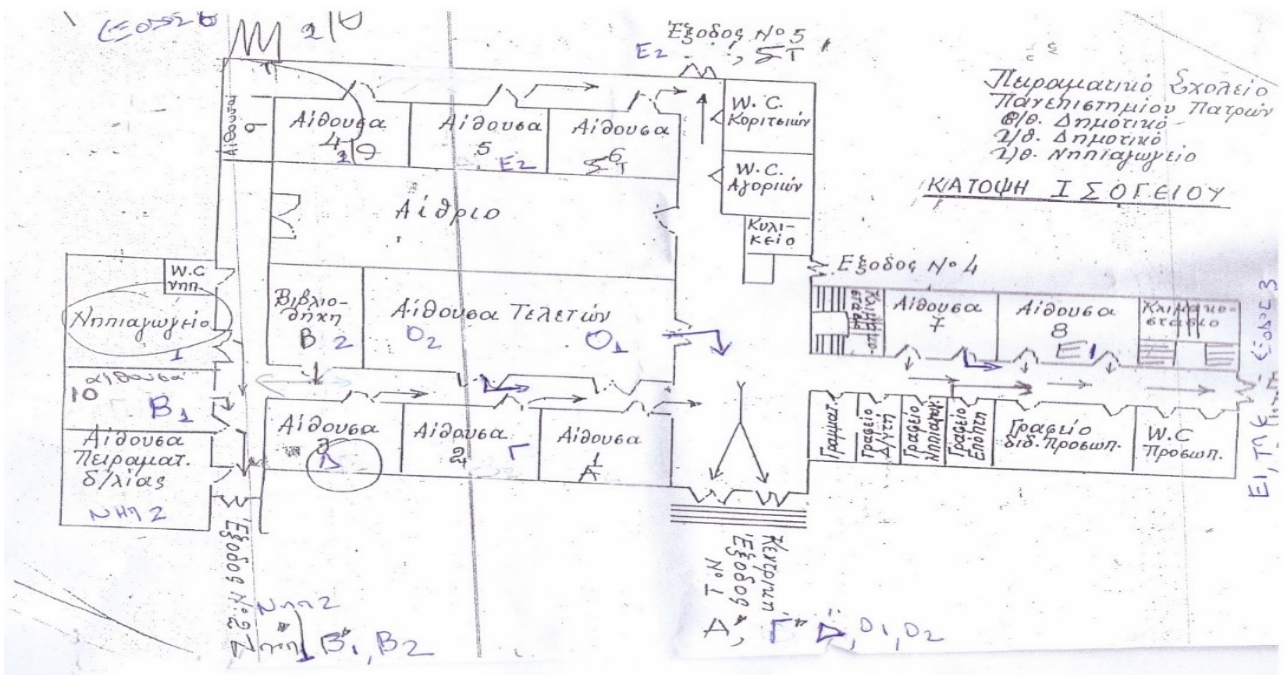 Έξοδος Νο 5
Ε2, ΣΤ'
Πειραματικό Σχολείο
Πανεπιστημίου Πατρών
6/θ. Δημοτικό
2/θ. Δημοτικό
2/θ. Νηπιαγωγείο
ΚΑΤΟΨΗ ΙΣΟΓΕΙΟΥ
Αίθουσα
9
Αίθουσα
4
Αίθουσα
5
Ε2
Αίθουσα
6
ΣΤ
W.C.
Κοριτσιών
W.C.
Αγοριών
Κυλι-
κείο
Αίθριο
W.C
νηπ.
Νηπιαγωγείο
1
αίθουσα
10
Β1
Αίθουσα
Πειραματ.
δ/λίας
ΝΗΠ 2
Βιβλιο-
θήκη
Β 2
Αίθουσα Τελετών
Ο2
Ο1
Έξοδος Νο 4
Κλιμακο-
στάσιο
Αίθουσα
7
Αίθουσα
8
Ε1
Κλιμακο-
στάσιο
Αίθουσα
3
Δ
Αίθουσα
2
Γ
Αίθουσα
1
Α
Γραμματ.
Γραφείο
Δ/ντή
Γραφείο
Νηπιαγωγ.
Γραφείο
Επόπτη
Γραφείο
διδ. Προσωπ.
W.C
Προσωπ.
Έξοδος Νο 2
Νηπ 2
Β1, Β2
Κεντρική
Έξοδος
Νο 1
Α, Γ, Δ, Ο1, Ο2
Ε1, ΤΠΕ